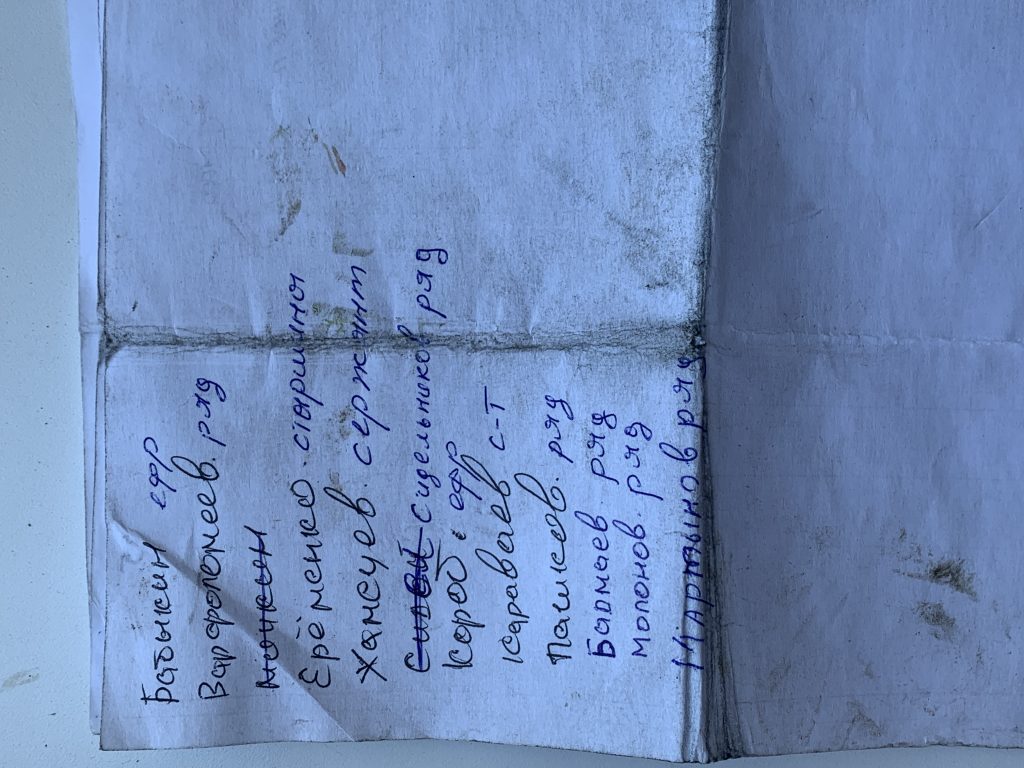 Бабыкин ефр
Варфоломеев. ряд
Ерёменко. старшина
Хамсуев. сержант
Сидельников ряд
Короб. ефр
Караваев с-т
Пашков. ряд
Бадмаев ряд
Молонов. ряд
Мартынов ряд